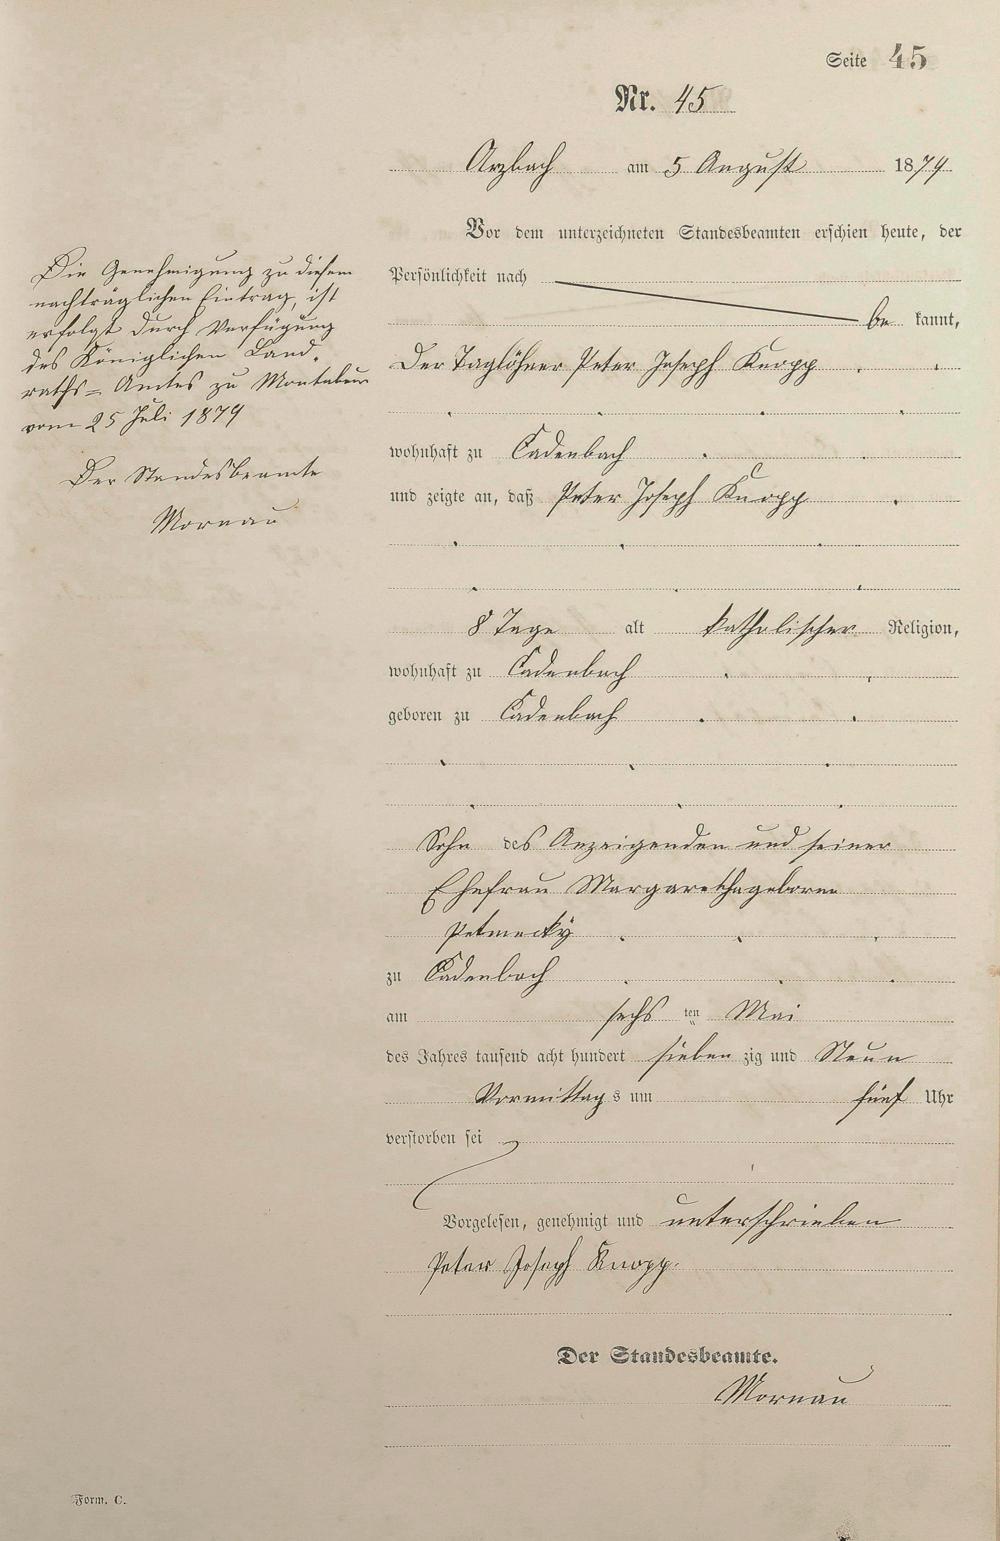 Seite 45
Nr. 45
Arzbach am 5 August 1879
Vor dem unterzeichneten Standesbeamten erschien heute, der
Persönlichkeit nach
be kannt,
Der Taglöhner Peter Joseph Knopp
wohnhaft zu Cadenbach
und zeigte an, daß Peter Joseph Knopp
8 Tage alt katholischer Religion,
wohnhaft zu Cadenbach
geboren zu Cadenbach
Sohn des Anzeigenden und seiner
Ehefrau Margaretha geborne
Petmecky
zu Cadenbach
am sechs ten Mai
des Jahres tausend acht hundert sieben zig und Neun
Vormittag s um fünf Uhr
verstorben sei
Vorgelesen, genehmigt und unterschrieben
Peter Joseph Knopp.
Der Standesbeamte.
Mornau
Die Genehmigung zu diesem
nachträglichen Eintrag, ist
erfolgt durch Verfügung
des Königlichen Land-
raths-Amtes zu Montabaur
vom 25 Juli 1879
Der Standesbeamte
Mornau
Form. C.